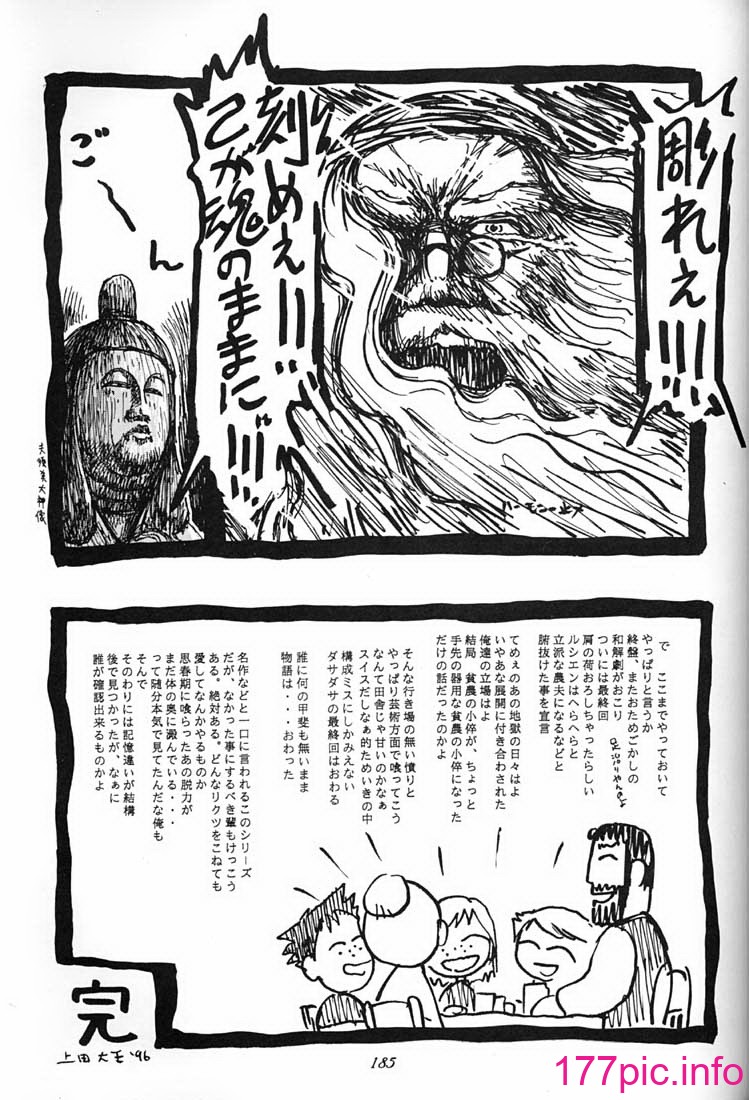 彫れぇ!!!
刻めぇ!!
己が魂のままに!!!
ご〜ん
で ここまでやっておいて
やっぱりと言うか
終盤、またおためごかしの
和解劇がおこり
ついには最終回
肩の荷おろしちゃったらしい
ルシエンはへらへらと
立派な農夫になるなどと
腑抜けた事を宣言
てめぇのあの地獄の日々はよ
いやあな展開に付き合わされた
俺達の立場はよ
結局 貧農の小倅が、ちょっと
手先の器用な貧農の小倅になった
だけの話だったのかよ
そんな行き場の無い憤りと
やっぱり芸術方面で喰ってこう
なんて田舎じゃ甘いのかなぁ
スイスだしなぁ的ためいきの中
構成ミスにしかみえない
ダサダサの最終回はおわる
誰に何の甲斐も無いまま
物語は・・・おわった
名作などと一口に言われるこのシリーズ
だが、なかった事にするべき輩もけっこう
ある。絶対ある。どんなリクツをこねても
愛してなんかやるものか
思春期に喰らったあの脱力が
まだ体の奥に澱んでいる・・・
って随分本気で見てたんだな俺も
そんで
そのわりには記憶違いが結構
後で見つかったが、なぁに
誰が確認出来るものかよ
完
'96
185
177pic.info